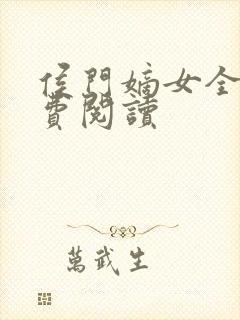 侯門嫡女全
費閱讀
萬武生